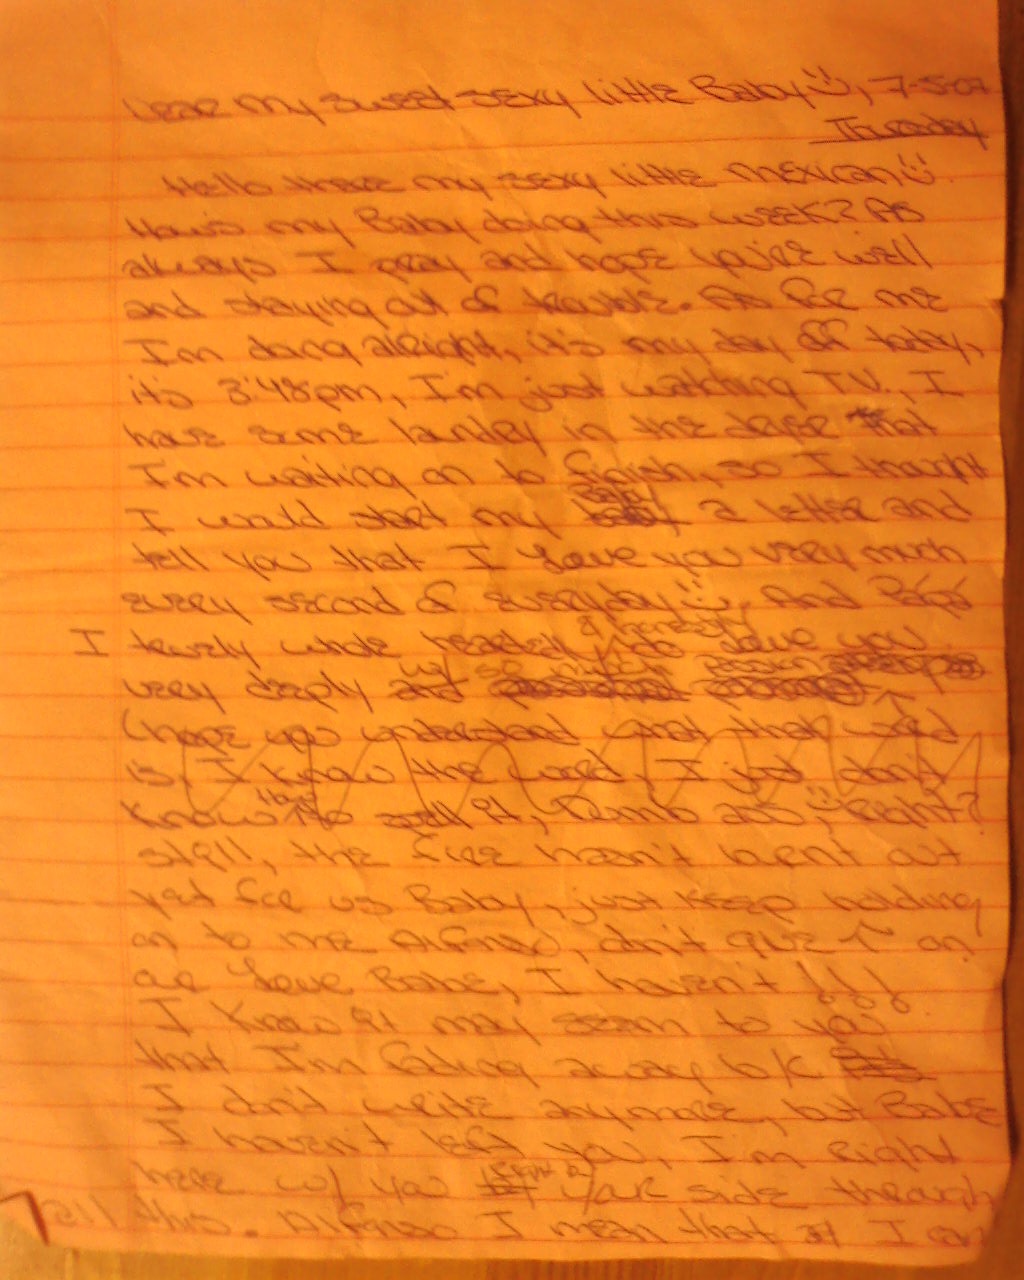 Dear My sweet sexy little Baby, 7-5-07
Thursday
Hello there my sexy little mexican
How's my Baby doing this week? As
always I pray and hope you're well
and staying out of trouble. As for me
I'm doing alright, it's my day off today,
it's 3:48pm, I'm just watching T.V. I
have some laundry in the dryer that
I'm waiting on to finish, so I thought
I would start my a letter and
tell you that I Love you very much
every second of everyday, And
I truely whole heartedly & honestly do Love you
very deeply w/ so much
I hope you understand what that word
is, I know the word, I just don't
know how to spell it, dumb ass, right?
still, the fire hasn't burnt out
yet for us Baby, just keep holding
on to me Alfonso, don't give ↑ on
are Love Babe, I haven't !!!
I know it may seem to you
that I'm fading away b/c
I don't write anymore, but Babe
I haven't left you, I'm right
here w/ you right by your side through
all this. Alfonso I mean that I can